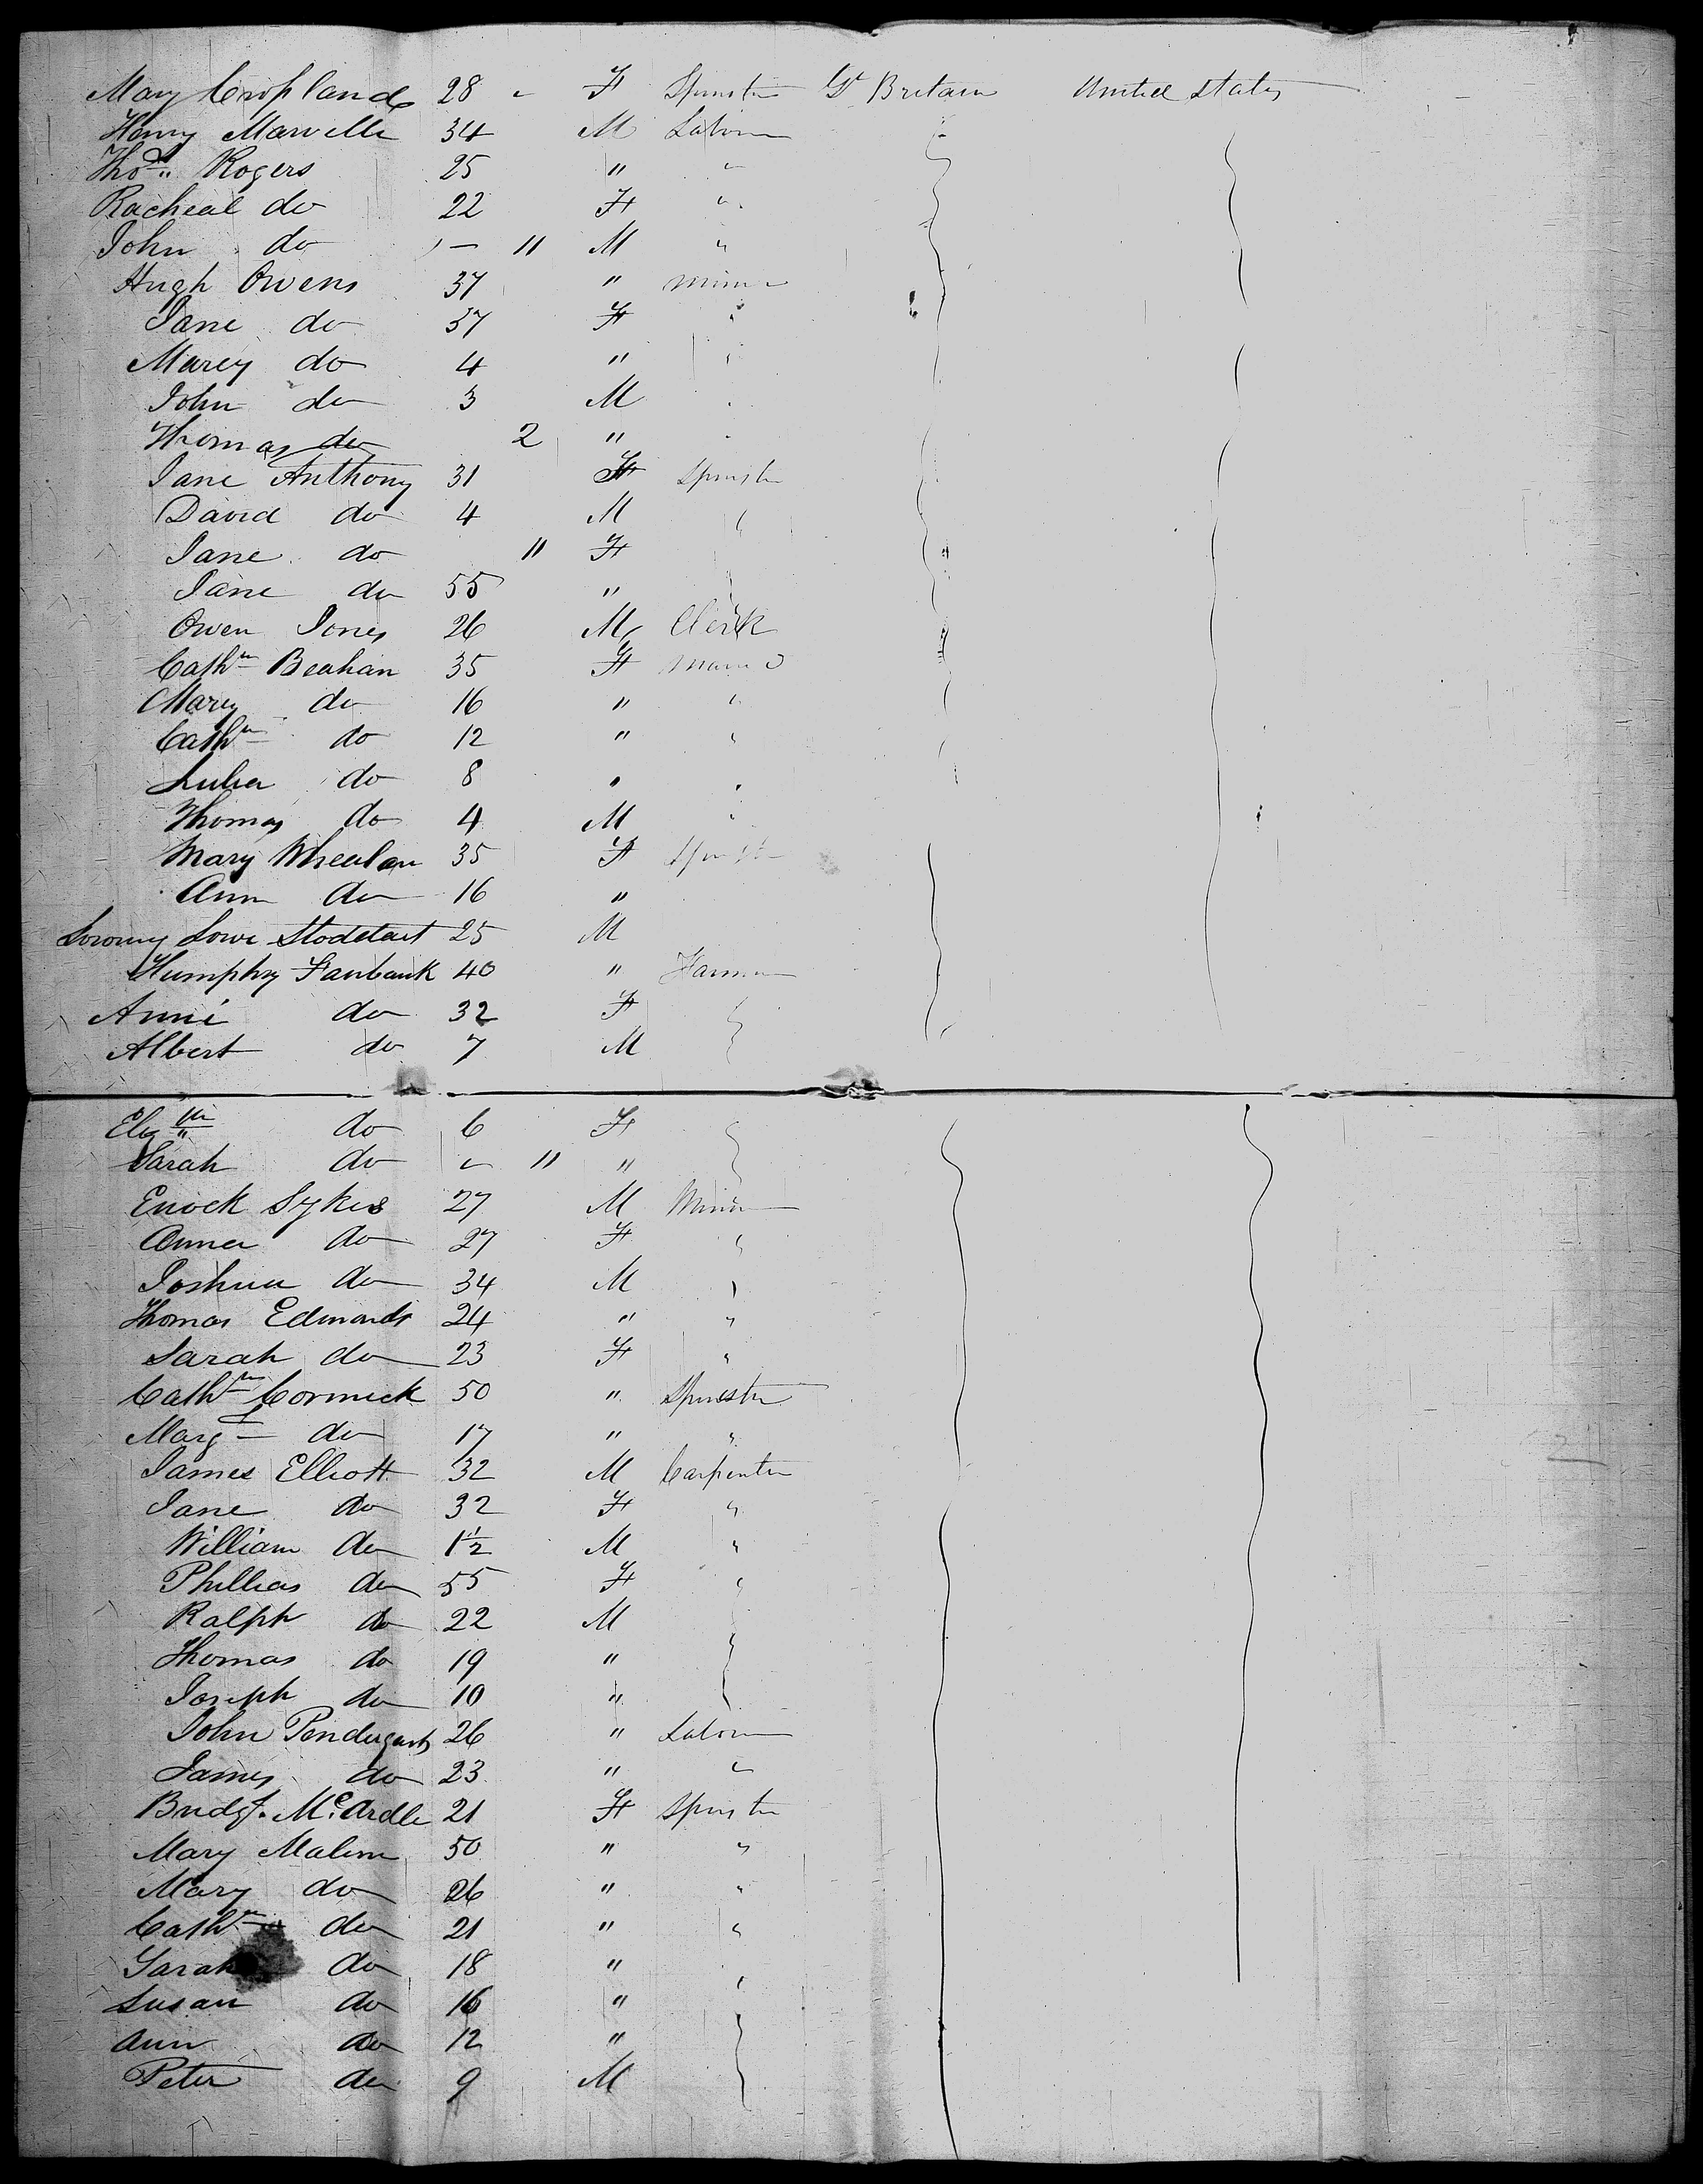 Mary Cropland 28 " F Spinster Gt Britain United States
Henry Marvelle 34 M Labour
Thos. Rogers 25 " "
Racheal do 22 F "
John do - 11 M "
Hugh Owens 37 " Miner
Jane do 37 F "
Marey do 4 "
John do 3 M
Thomas do 2 "
Jane Anthony 31 F Spinster
David do 4 M "
Jane do 11 F
Jane do 55 "
Owen Jones 26 M Clerk
Cathn Beahan 35 F Married
Mary do 16 " "
Cathn do 12 " "
Julia do 8 " "
Thomas do 4 M "
Mary Whealan 35 F Spinster
Ann do 16 "
Lowe Stodetart 25 M
Humphry Fanbank 40 " Farmer
Anni do 32 F
Albert do 7 M
Elizth do 6 F
Sarah do " 11 "
Enock Sykes 27 M Miner
Anna do 27 F "
Joshua do 34 M "
Thomas Edwards 24 " "
Sarah do 23 F "
Cathn Cormick 50 " Spinster
Margt do 17 " "
James Elliott 32 M Carpenter
Jane do 32 F "
William do 1½ M "
Phillias do 55 F "
Ralph do 22 M
Thomas do 19 "
Joseph do 10 "
John Pendergarts 26 " Labour
James do 23 " "
Bridgt. McArdle 21 F Spinster
Mary Malim 50 " "
Mary do 26 " "
Cathn do 21 " "
Sarah do 18 "
Susan do 16 "
Ann do 12 "
Peter do 9 M